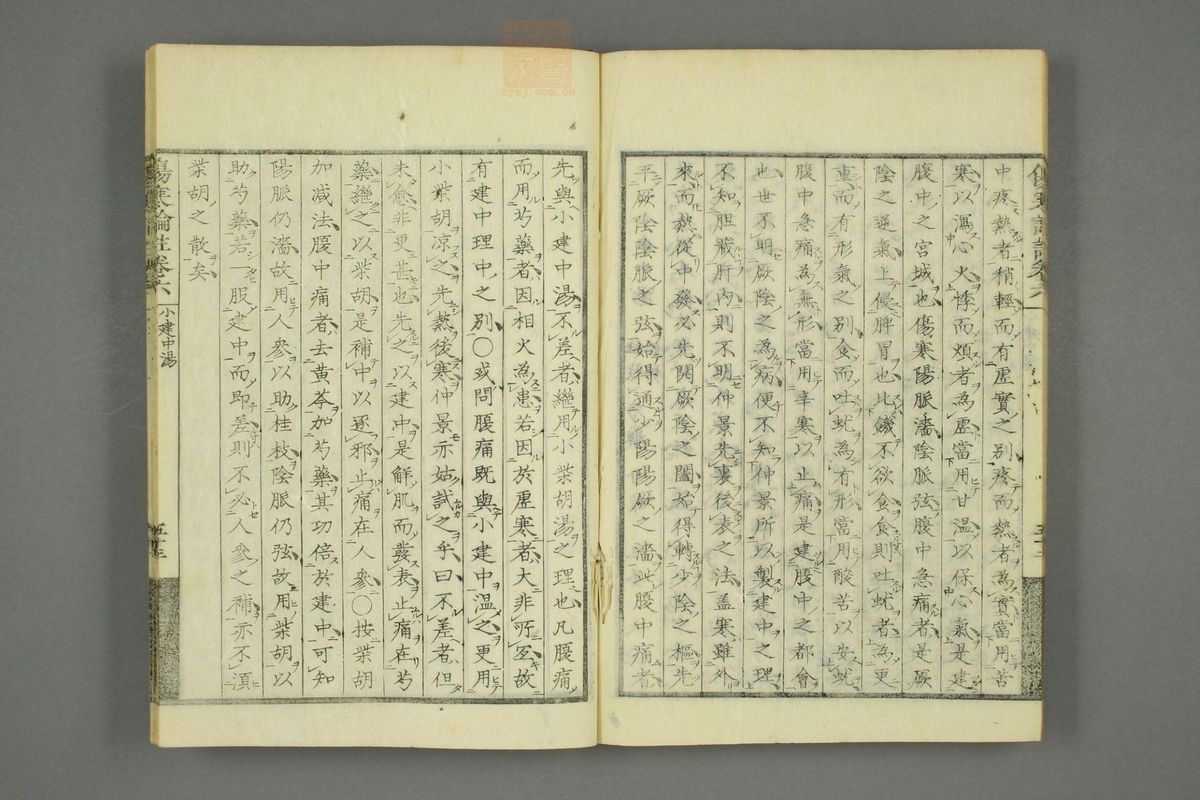 中疼熱者稍輕而有虛實之別疼而熱者為實當用苦
寒以瀉心火悸而煩者為虛當用甘溫以保心氣是建
腹中之宮城也傷寒陽脈濇陰脈弦腹中急痛者是厥
陰之逆氣上侵脾胃也比饑不欲食食則吐蚘者為更
重而有形氣之別食而吐蚘為有形當用酸苦以安蚘
腹中急痛為無形當用辛寒以止痛是建腹中之都會
也世不明厥陰之為病便不知仲景所以製建中之理
不知胆藏肝內則不明仲景先裏後表之法蓋寒雖外
來而熱從中發必先開厥陰之闔始得轉少陰之樞先
平厥陰陰脈之弦始得通少陽陽厥之濇此腹中痛者
先與小建中湯不差者繼用小柴胡湯之理也凡腹痛
而用芍藥者因相火為患若因於虛寒者大非所宜故
有建中理中之別〇或問腹痛既與小建中溫之更用
小柴胡凉之先熱後寒仲景亦姑試之乎曰不差者但
未愈非更甚也先之以建中是解肌而發表止痛在芍
藥繼之以柴胡是補中以逐邪止痛在人參〇按柴胡
加減法腹中痛者去黃芩加芍藥其功倍於建中可知
陽脈仍濇故用人參以助桂枝陰脈仍弦故用柴胡以
助芍藥若一服建中而即差則不必人參之補亦不須
柴胡之散矣
傷寒論註卷六
小建中湯
五十三
zysj.com.cn